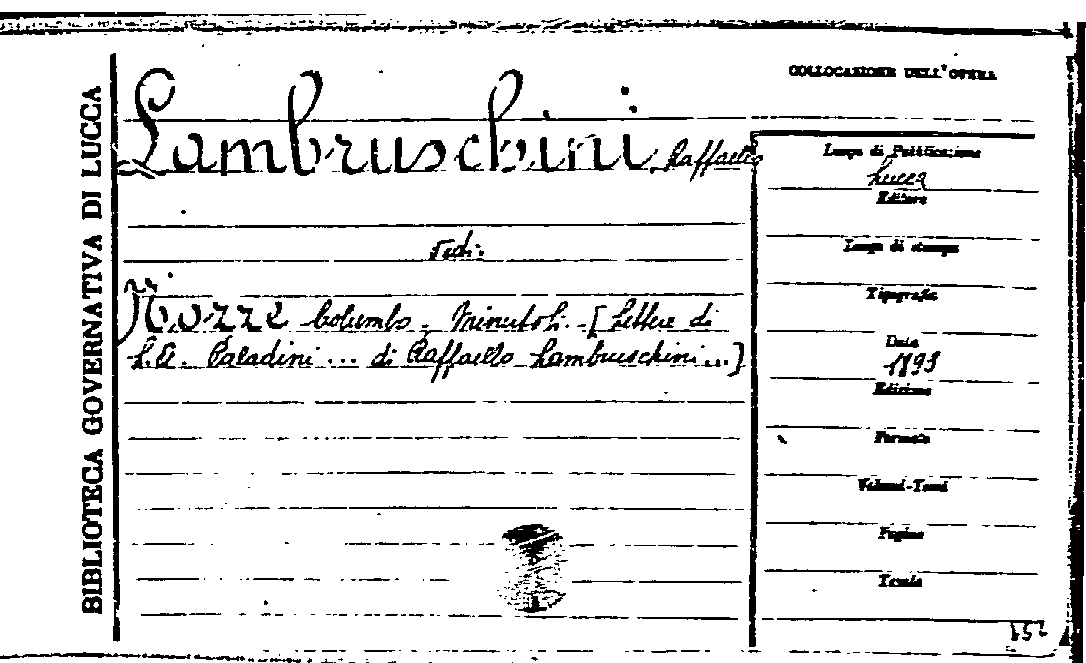 BIBLIOTECA GOVERNATIVA DI LUCCA
COLLOCAZIONE DELL'OPERA
Lambruschini Raffaello
Vedi:
Nozze Colombo - Minutoli - [Lettere di
L.A. Paladini ... di Raffaello Lambruschini ...]
Luogo di Pubblicazione
Lucca
Editore
Luogo di stampa
Tipografia
Data
1893
Edizione
Formato
Volumi-Tomi
Pagine
Tavole